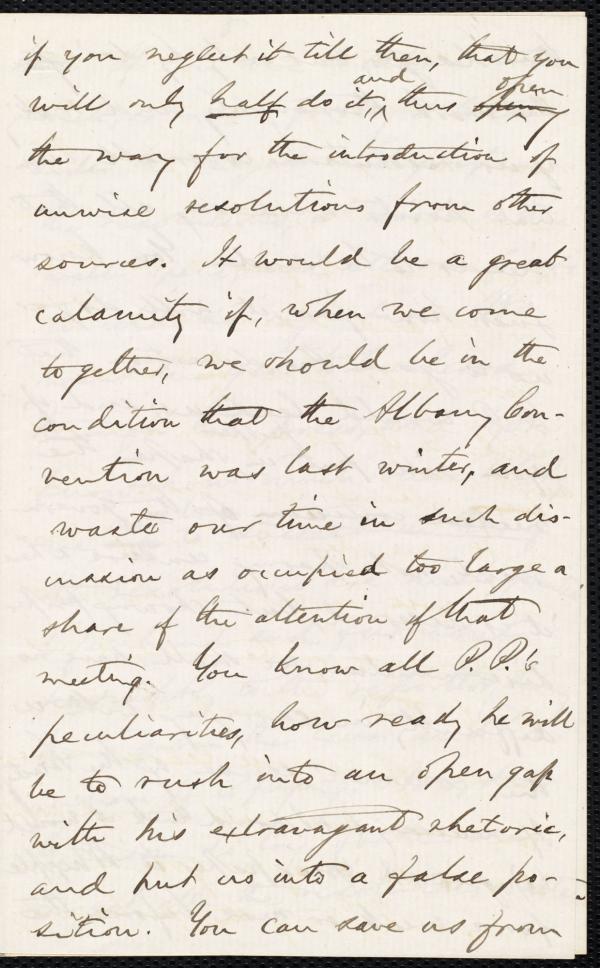 if you neglect it till then, that you
and open
will only half do it, thus opening
the way for the introduction of
unwise resolutions from other
sources. It would be a great
calamity if, when we come
together, we should be in the
condition that the Albany Con-
vention was last winter, and
waste our time in such dis-
cussion as occupied too large a
share of the attention of that
meeting. You know all P.P.'s
peculiarities, how ready he will
be to rush into an open gap
with his extravagant rhetoric,
and put us into a false po-
sition. You can save us from